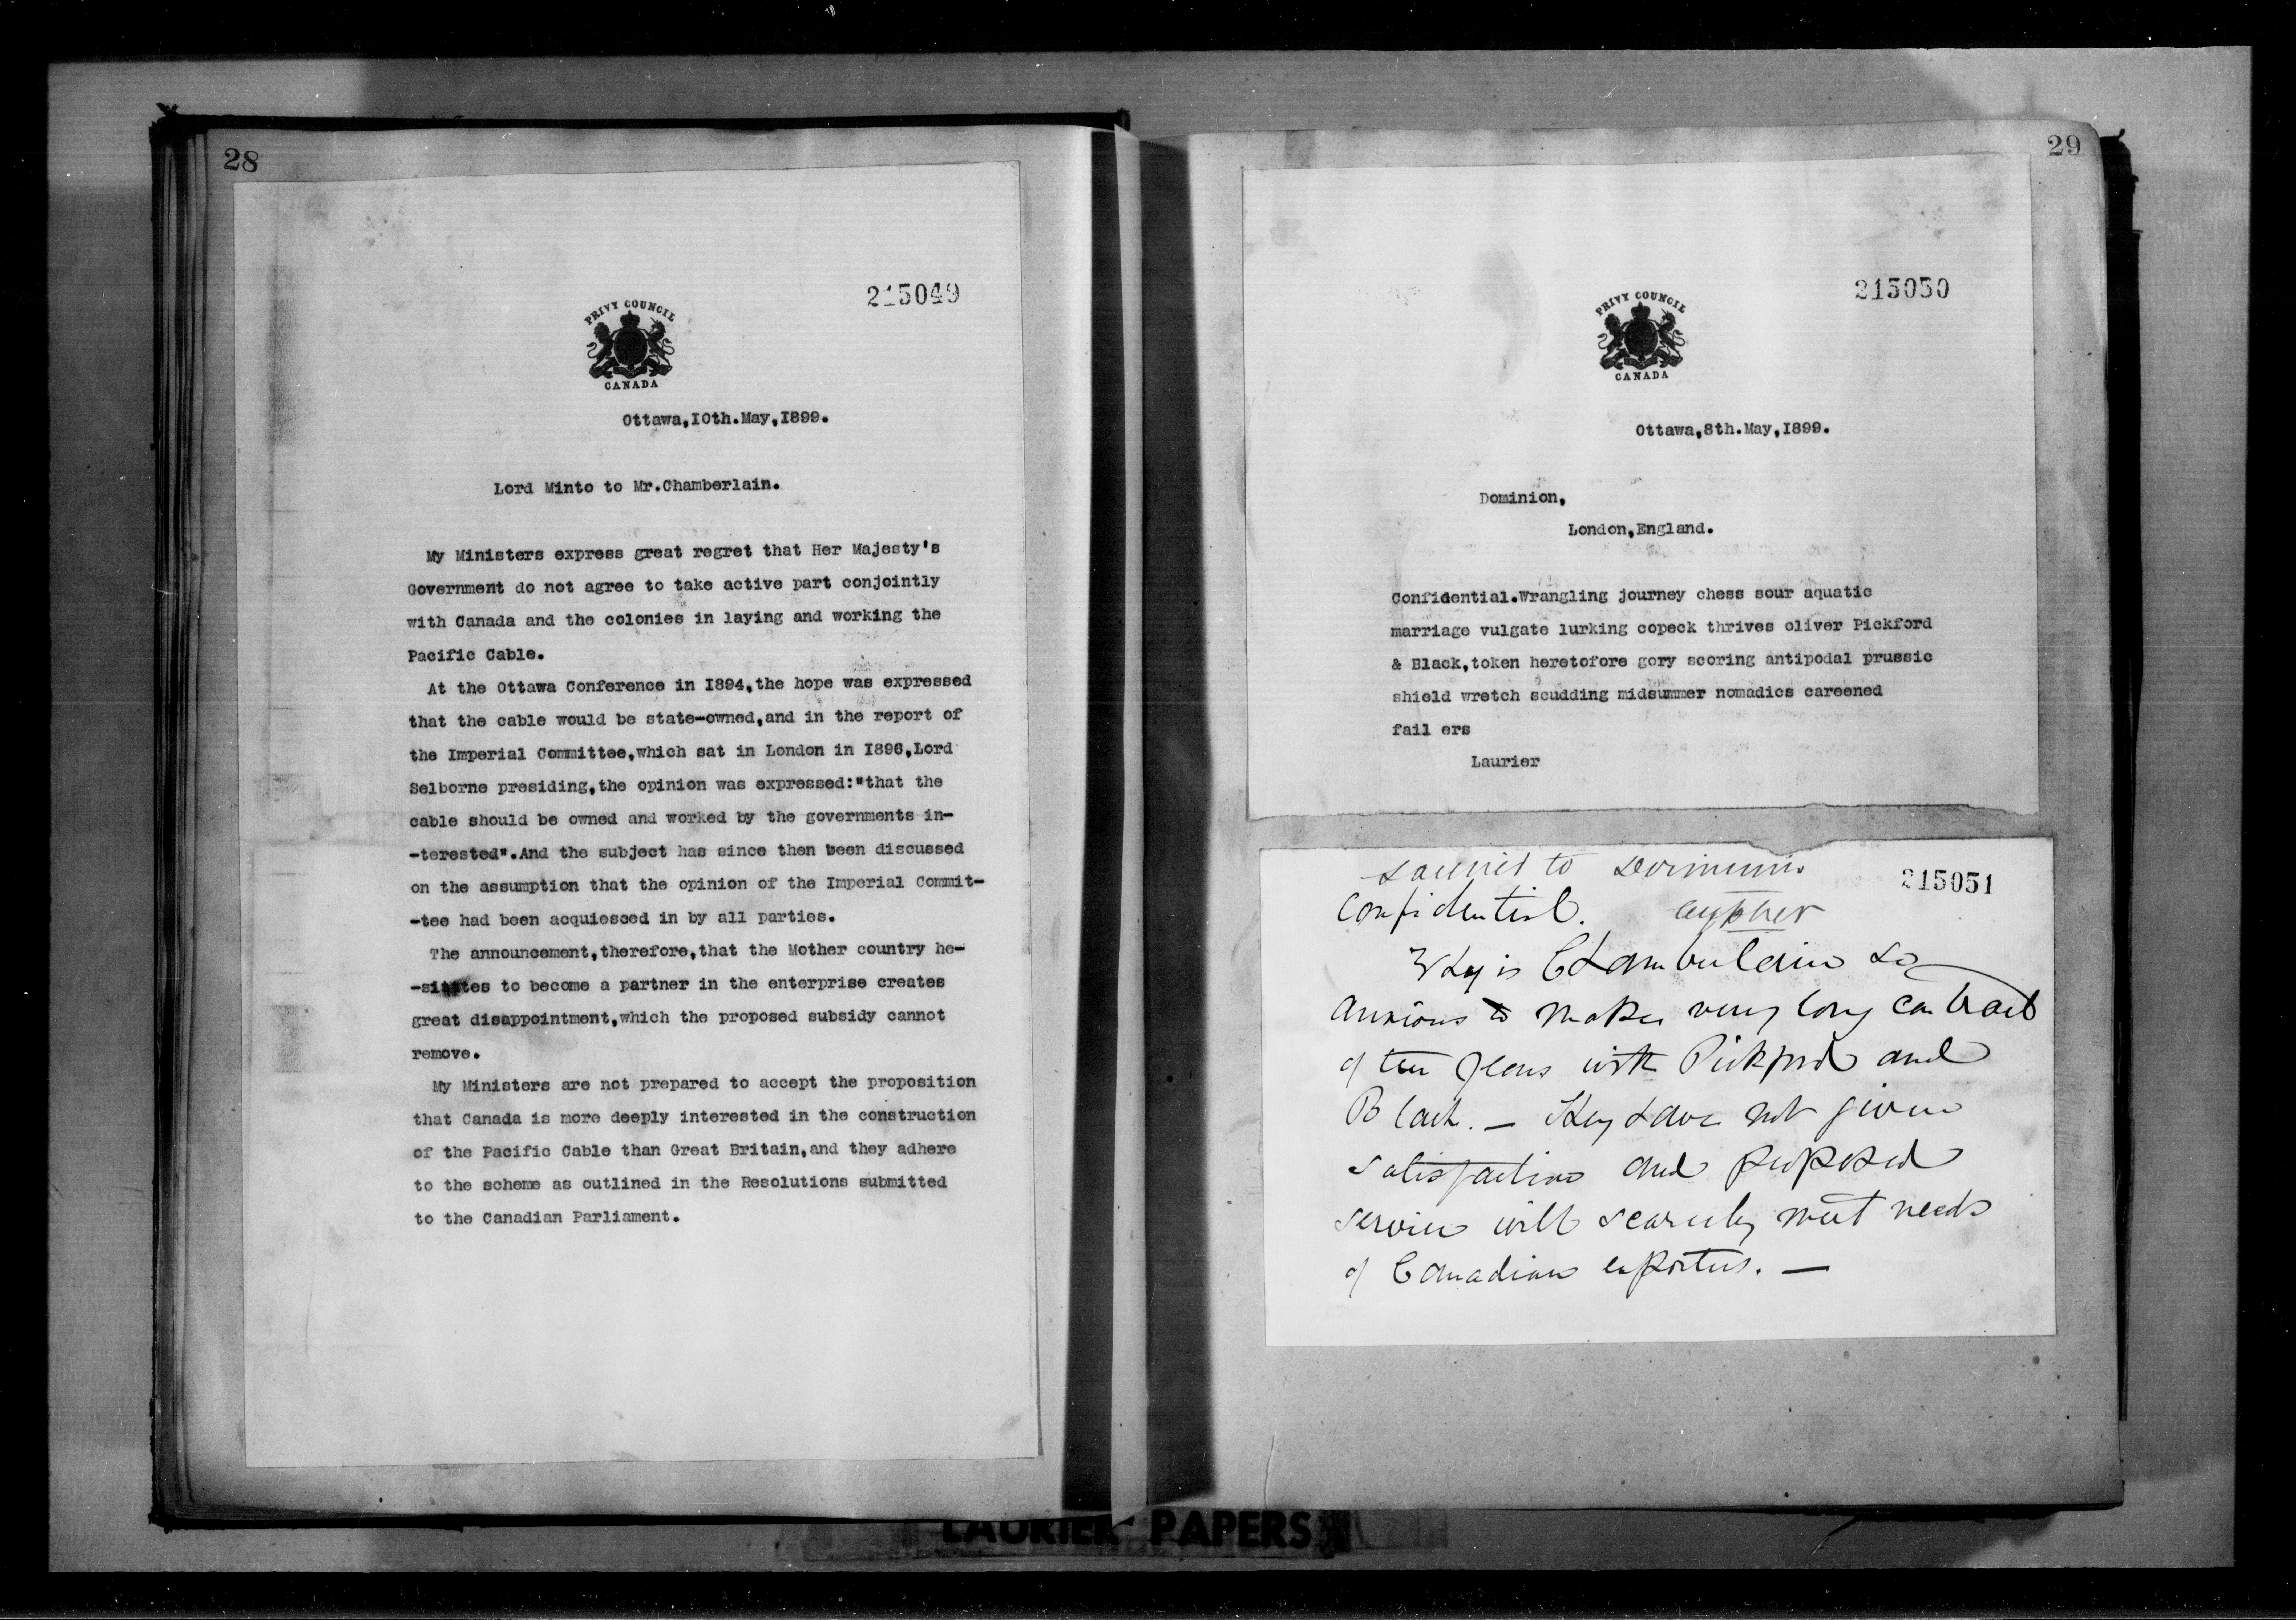 28
215049
PRIVY COUNCIL
CANADA
Ottawa,10th.May,1899.
Lord Minto to Mr.Chamberlain.
My Ministers express great regret that Her Majesty's
Government do not agree to take active part conjointly
with Canada and the colonies in laying and working the
Pacific Cable.
At the Ottawa Conference in 1894,the hope was expressed
that the cable would be state-owned,and in the report of
the Imperial Committee,which sat in London in 1896,Lord
Selborne presiding,the opinion was expressed:"that the
cable should be owned and worked by the governments in-
-terested".And the subject has since then been discussed
on the assumption that the opinion of the Imperial Commit-
-tee had been acquiesced in by all parties.
The announcement,therefore,that the Mother country he-
-sitates to become a partner in the enterprise creates
great disappointment,which the proposed subsidy cannot
remove.
My Ministers are not prepared to accept the proposition
that Canada is more deeply interested in the construction
of the Pacific Cable than Great Britain,and they adhere
to the scheme as outlined in the Resolutions submitted
to the Canadian Parliament.
29
215050
PRIVY COUNCIL
CANADA
Ottawa,8th.May,1899.
Dominion,
London,England.
Confidential.Wrangling journey chess sour aquatic
marriage vulgate lurking copeck thrives oliver Pickford
& Black,token heretofore gory scoring antipodal prussic
shield wretch scudding midsummer nomadics careened
fail ers
Laurier
Laurier to Dominion
215051
Confidential. cypher
Why is Chamberlain so
anxious to make very long contract
of ten years with Pickford and
Black. — They have not given
satisfaction and proposed
service will scarcely meet needs
of Canadian exporters. —
LAURIER PAPERS